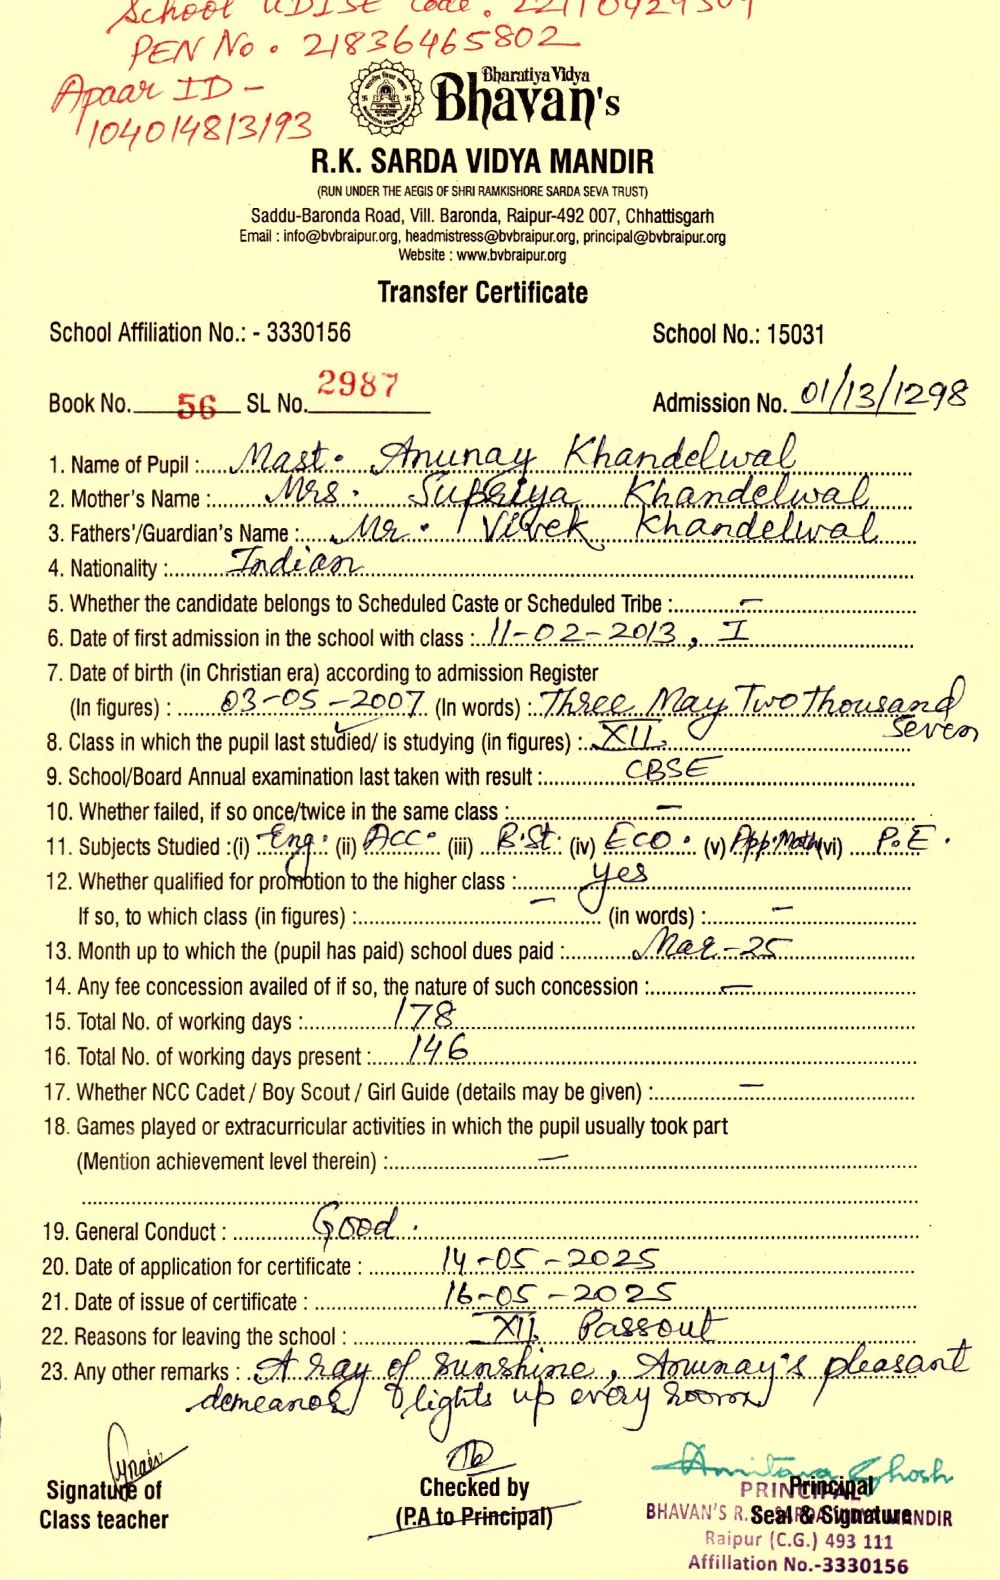 School UDISE Code.
PEN No. 21836465802
Apaar ID -
104014813193
Bharatiya Vidya
Bhavan's
R.K. SARDA VIDYA MANDIR
(RUN UNDER THE AEGIS OF SHRI RAMKISHORE SARDA SEVA TRUST)
Saddu-Baronda Road, Vill. Baronda, Raipur-492 007, Chhattisgarh
Email : info@bvbraipur.org, headmistress@bvbraipur.org, principal@bvbraipur.org
Website : www.bvbraipur.org
Transfer Certificate
School Affiliation No.: - 3330156 School No.: 15031
Book No. 56 SL No. 2987 Admission No. 01/13/1298
1. Name of Pupil : Mast. Anunay Khandelwal
2. Mother's Name : Mrs. Supriya Khandelwal
3. Fathers'/Guardian's Name : Mr. Vivek Khandelwal
4. Nationality : Indian
5. Whether the candidate belongs to Scheduled Caste or Scheduled Tribe : –
6. Date of first admission in the school with class : 11-02-2013, I
7. Date of birth (in Christian era) according to admission Register
(In figures) : 03-05-2007 (In words) : Three May Two Thousand
Seven
8. Class in which the pupil last studied/ is studying (in figures) : XII
9. School/Board Annual examination last taken with result : CBSE
10. Whether failed, if so once/twice in the same class : –
11. Subjects Studied :(i) Eng. (ii) Acc. (iii) B.St. (iv) Eco. (v) App.Math (vi) P.E.
12. Whether qualified for promotion to the higher class : yes
If so, to which class (in figures) : – (in words) : –
13. Month up to which the (pupil has paid) school dues paid : Mar-25
14. Any fee concession availed of if so, the nature of such concession : –
15. Total No. of working days : 178
16. Total No. of working days present : 146
17. Whether NCC Cadet / Boy Scout / Girl Guide (details may be given) : –
18. Games played or extracurricular activities in which the pupil usually took part
(Mention achievement level therein) : –
19. General Conduct : Good.
20. Date of application for certificate : 14-05-2025
21. Date of issue of certificate : 16-05-2025
22. Reasons for leaving the school : XII Passout
23. Any other remarks : A ray of sunshine, Anunay's pleasant
demeanor lights up every room
Signature of
Class teacher
Checked by
(P.A to Principal)
Amitava Ghosh
Principal
Seal & Signature
PRINCIPAL
BHAVAN'S R.K. SARDA VIDYA MANDIR
Raipur (C.G.) 493 111
Affillation No.-3330156